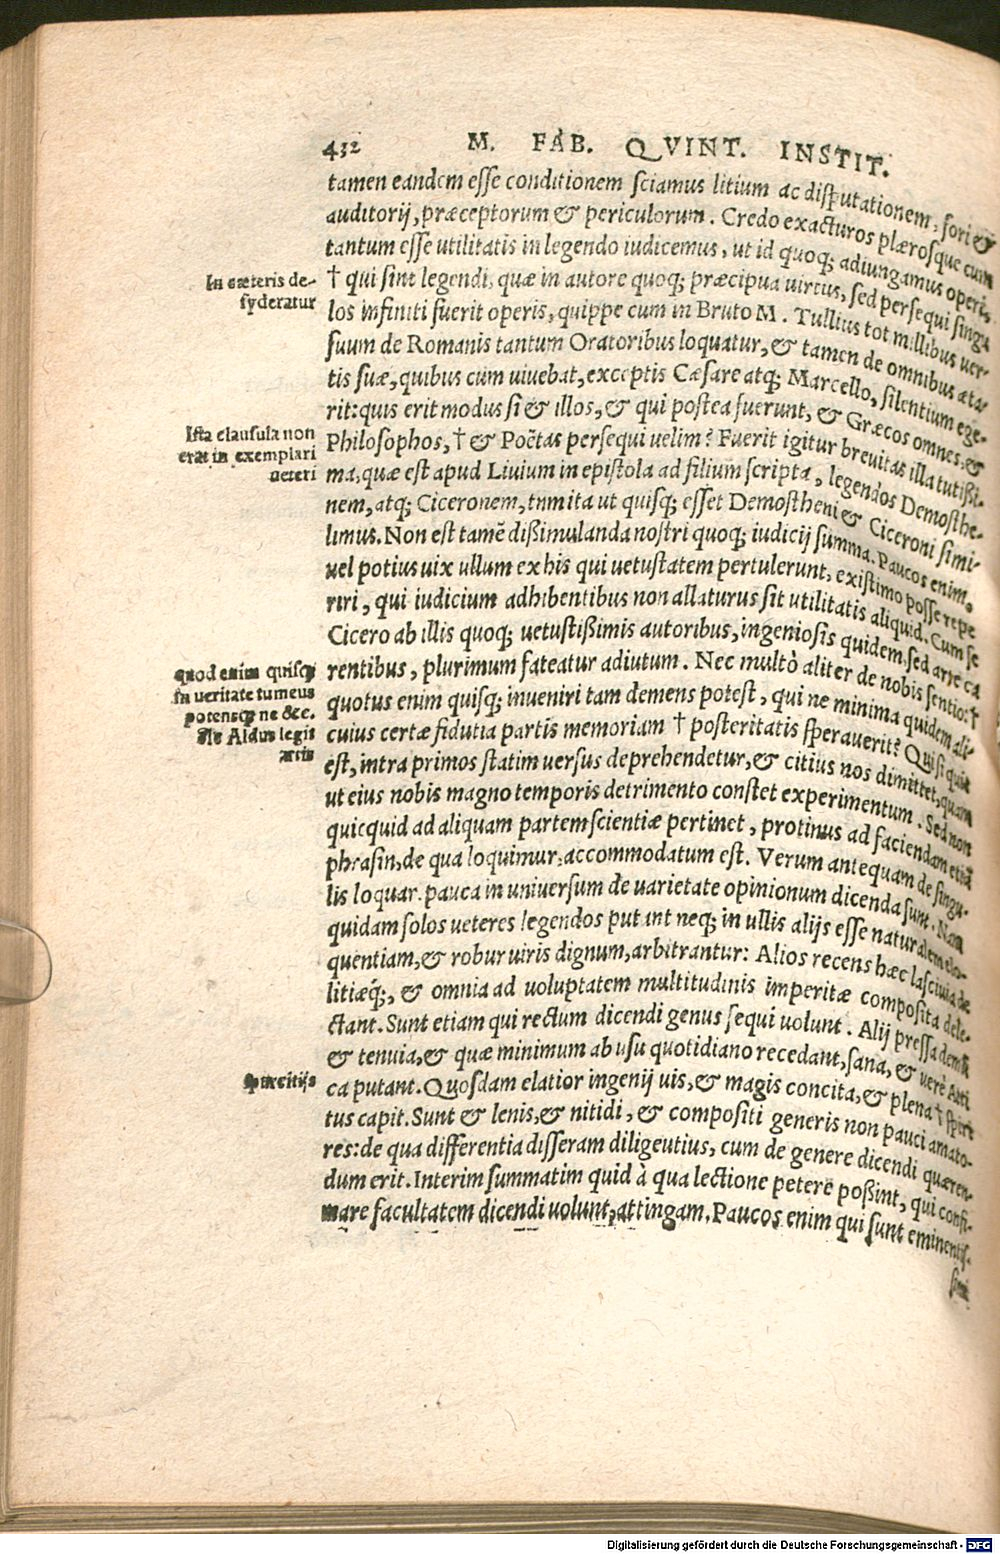 432 M. FAB. QVINT. INSTIT.
tamen eandem esse conditionem sciamus litium ac disputationem, fori &
auditorij, præceptorum & periculorum. Credo exacturos plærosque cum
tantum esse utilitatis in legendo iudicemus, ut id quoq; adiungamus operi,
In cæteris de-
syderatur
† qui sint legendi, quæ in autore quoq; præcipua uirtus, sed persequi singu
los infiniti fuerit operis, quippe cum in Bruto M. Tullius tot millibus uer-
suum de Romanis tantum Oratoribus loquatur, & tamen de omnibus æta-
tis suæ, quibus cum uiuebat, exceptis Cæsare atq; Marcello, silentium ege-
rit: quis erit modus si & illos, & qui postea fuerunt, & Græcos omnes, &
Ista clausula non
erat in exemplari
ueteri
Philosophos, † & Poëtas persequi uelim? Fuerit igitur breuitas illa tutißi-
ma, quæ est apud Liuium in epistola ad filium scripta, legendos Demosthe-
nem, atq; Ciceronem, tum ita ut quisq; esset Demostheni & Ciceroni simi-
limus. Non est tamē dißimulanda nostri quoq; iudicij summa. Paucos enim,
uel potius uix ullum ex his qui uetustatem pertulerunt, existimo posse repe
riri, qui iudicium adhibentibus non allaturus sit utilitatis aliquid. Cum se
Cicero ab illis quoq; uetustißimis autoribus, ingeniosis quidem, sed arte ca
quod enim quisq;
in ueritate tumeus
potensq; ne &c.
Ne Aldus legit
artis
rentibus, plurimum fateatur adiutum. Nec multò aliter de nobis sentio: †
quotus enim quisq; inueniri tam demens potest, qui ne minima quidem ali-
cuius certæ fidutia partis memoriam † posteritatis sperauerit? Qui si quis
est, intra primos statim uersus deprehendetur, & citius nos dimittet, quam
ut eius nobis magno temporis detrimento constet experimentum. Sed non
quicquid ad aliquam partem scientiæ pertinet, protinus ad faciendam etiā
phrasin, de qua loquimur, accommodatum est. Verum antequam de singu-
lis loquar, pauca in uniuersum de uarietate opinionum dicenda sunt. Nam
quidam solos ueteres legendos putant neq; in ullis alijs esse naturalem elo-
quentiam, & robur uiris dignum, arbitrantur: Alios recens hæc lasciuia de
litiæq́;, & omnia ad uoluptatem multitudinis imperitæ composita dele-
ctant. Sunt etiam qui rectum dicendi genus sequi uolunt. Alij pressa demū
& tenuia, & quæ minimum ab usu quotidiano recedant, sana, & uerè Atti
ca putant. Quosdam elatior ingenij uis, & magis concita, & plena † spiri
tus capit. Sunt & lenis, & nitidi, & compositi generis non pauci amato-
res: de qua differentia disseram diligeutius, cum de genere dicendi quæren-
dum erit. Interim summatim quid à qua lectione petere poßint, qui confi-
mare facultatem dicendi uolunt, attingam. Paucos enim qui sunt eminentis-
simi
Digitalisierung gefördert durch die Deutsche Forschungsgemeinschaft - DFG